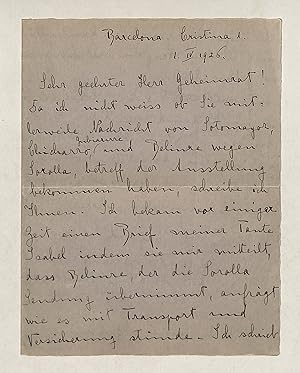 Barcelona. Cristina 1.
1. IV 1926.
Sehr geehrter Herr Geheimrat!
Da ich nicht weiss ob Sie mit-
lerweile Nachricht von Sotomayor,
Chicharro, und Benlliure wegen
Sorolla, betreff der Ausstellung
bekommen haben, schreibe ich
Ihnen. Ich bekam vor einiger
Zeit einen Brief meiner Tante
Isabel indem sie mir mitteilt,
dass Benlliure, der die Sorolla
Sendung übernimmt, anfrägt
wie es mit Transport und
Versicherung stünde. Ich schrieb